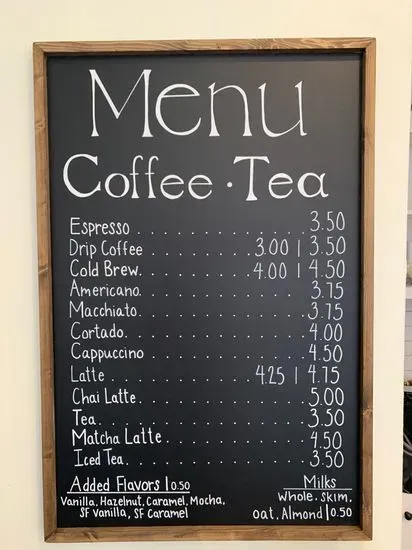 Menu
Coffee · Tea
Espresso . . . . . . . . . . . . . 3.50
Drip Coffee . . . . . . . . 3.00 | 3.50
Cold Brew. . . . . . . . . 4.00 | 4.50
Americano. . . . . . . . . . . . 3.75
Macchiato. . . . . . . . . . . . 3.75
Cortado. . . . . . . . . . . . . 4.00
Cappuccino . . . . . . . . . . . 4.50
Latte . . . . . . . . . . . 4.25 | 4.75
Chai Latte. . . . . . . . . . . . 5.00
Tea. . . . . . . . . . . . . . . 3.50
Matcha Latte. . . . . . . . . . 4.50
Iced Tea. . . . . . . . . . . . . 3.50
Added Flavors | 0.50
Vanilla, Hazelnut, Caramel, Mocha,
SF Vanilla, SF Caramel
Milks
Whole, Skim,
Oat, Almond | 0.50